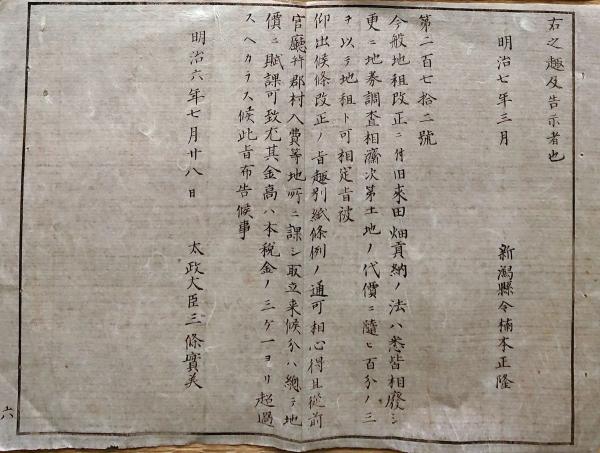 右之趣及告示者也
明治七年三月
新潟縣令楠本正隆
第二百七拾二號
今般地租改正ニ付旧来田畑貢納ノ法ハ悉皆相廢シ
更ニ地券調査相濟次第土地ノ代價ニ隨ヒ百分ノ三
ヲ以テ地租ト可相定旨被
仰出候條改正ノ旨趣別紙條例ノ通可相心得且從前
官廳幷郡村入費等地所ニ課シ取立来候分ハ總テ地
價ニ賦課可致尤其金高ハ本税金ノ三ケ一ヨリ超過
スヘカラス候此旨布告候事
明治六年七月廿八日
太政大臣三條實美
六